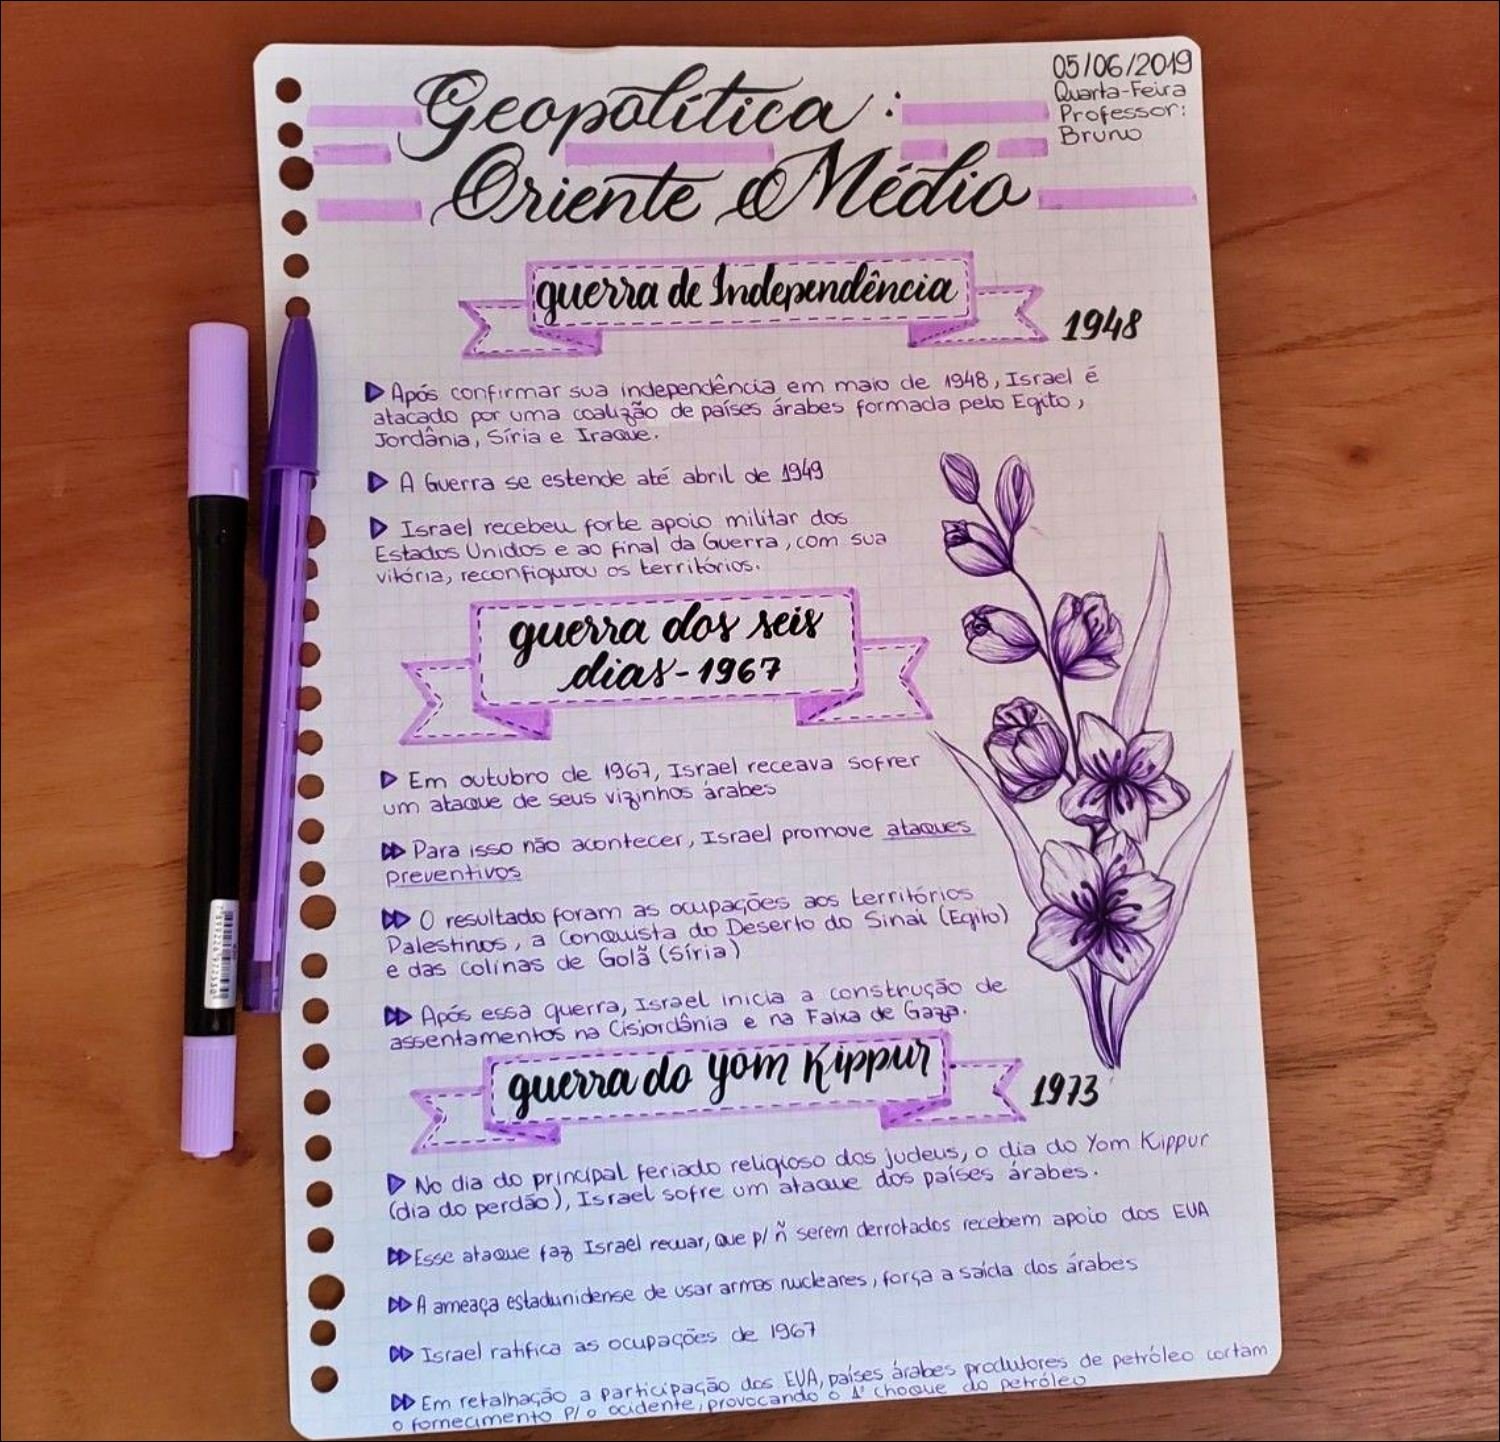 05/06/2019
Quarta-Feira
Professor:
Bruno
Geopolítica:
Oriente Médio
guerra de Independência
1948
Após confirmar sua independência em maio de 1948, Israel é
atacado por uma coalizão de países árabes formada pelo Egito,
Jordânia, Síria e Iraque.
A Guerra se estende até abril de 1949
Israel recebeu forte apoio militar dos
Estados Unidos e ao final da Guerra, com sua
vitória, reconfigurou os territórios.
guerra dos seis
dias-1967
Em outubro de 1967, Israel receava sofrer
um ataque de seus vizinhos árabes
Para isso não acontecer, Israel promove ataques
preventivos
O resultado foram as ocupações aos territórios
Palestinos, a Conquista do Deserto do Sinai (Egito)
e das Colinas de Golã (Síria)
Após essa guerra, Israel inicia a construção de
assentamentos na Cisjordânia e na Faixa de Gaza.
guerra do yom Kippur
1973
No dia do principal feriado religioso dos judeus, o dia do Yom Kippur
(dia do perdão), Israel sofre um ataque dos países árabes.
Esse ataque faz Israel recuar, que p/ ñ serem derrotados recebem apoio dos EUA
A ameaça estadunidense de usar armas nucleares, força a saída dos árabes
Israel ratifica as ocupações de 1967
Em retalhação a participação dos EUA, países árabes produtores de petróleo cortam
o fornecimento p/ o ocidente, provocando o 1º choque do petróleo